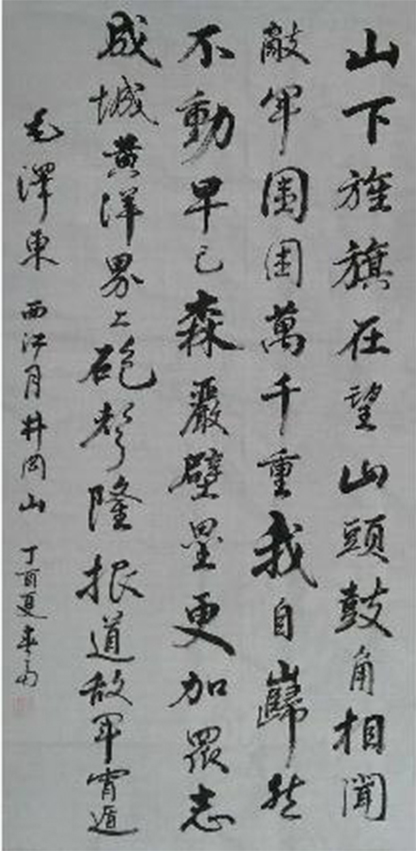 山下旌旗在望山頭鼓角相聞
敵軍圍困萬千重我自巋然
不動早已森嚴壁壘更加眾志
成城黄洋界上砲聲隆报道敌军宵遁
毛澤東 西江月井岡山 丁酉夏